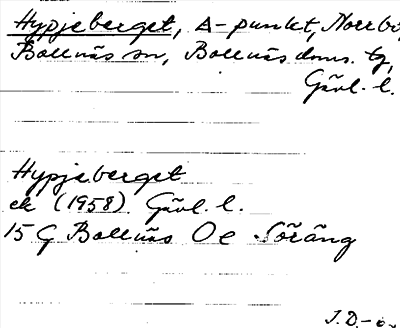 Hypjeberget, Δ-punkt, Norrbo,
Bollnäs sn, Bollnäs doms. tg,
Gävl. l.
Hypjeberget
ek (1958) Gävl. l.
15 G Bollnäs Oe Söräng
J.D.-